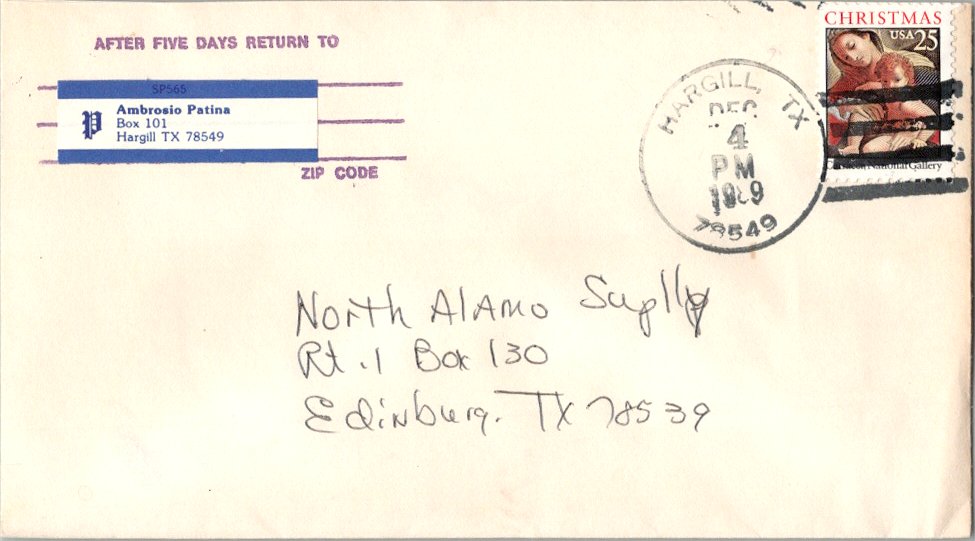 AFTER FIVE DAYS RETURN TO
SP565
P
Ambrosio Patina
Box 101
Hargill TX 78549
ZIP CODE
HARGILL, TX
DEC
4
PM
1989
78549
CHRISTMAS
USA 25
National Gallery
North Alamo Suplly
Rt. 1 Box 130
Edinburg. TX 78539